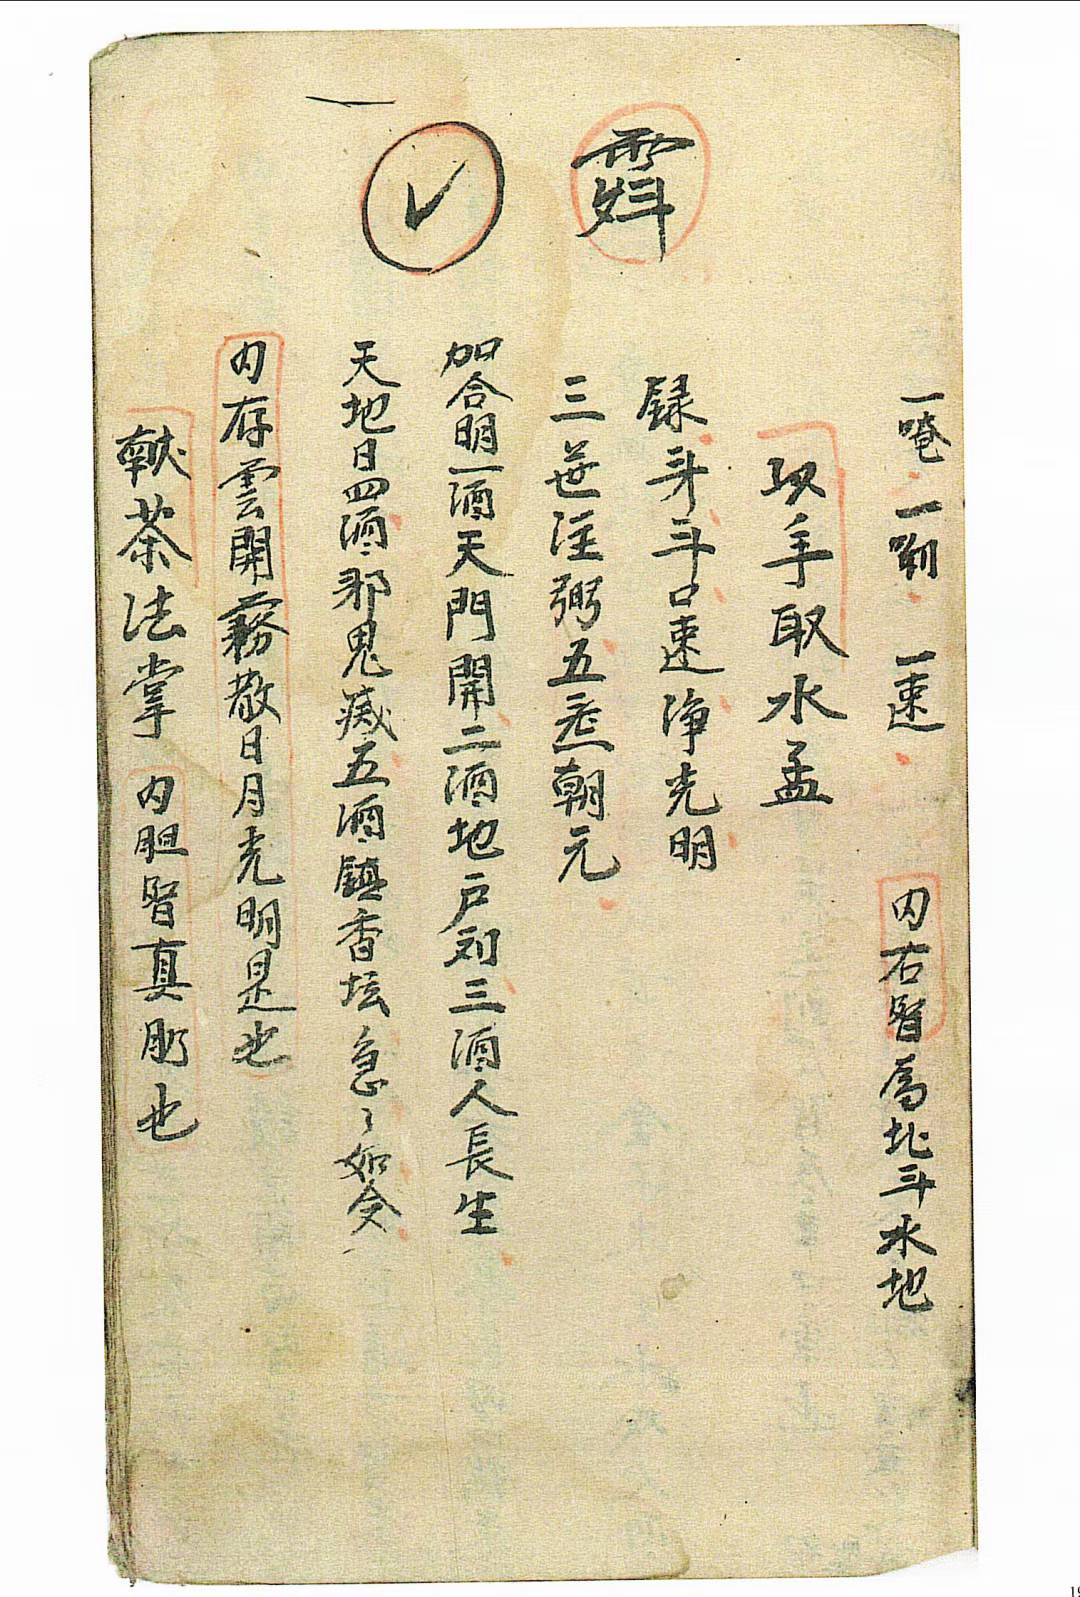 一唵 一㘑 一速 内右腎為北斗水地
以手取水盂
録身斗口速净光明
三世注弼五炁朝元
加合明一洒天門開二洒地户列三洒人長生
天地日四洒邪鬼滅五洒鎮香坛急〻如令
内存雲開霧散日月光明是也
献茶法掌 内胆腎真肝也
19